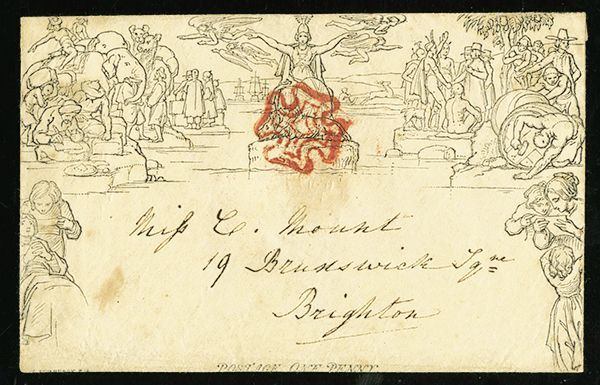 Miss C. Mount
19 Brunswick Sqre
Brighton
POSTAGE ONE PENNY